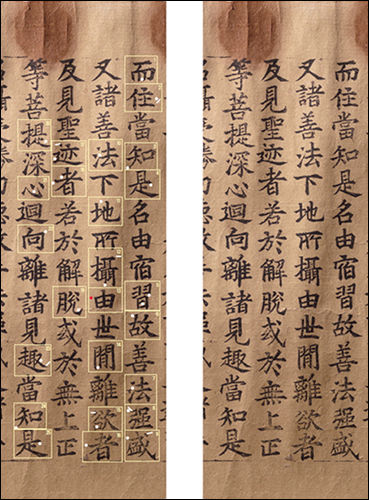 而住當知是名由宿習故善法强盛
又諸善法下地所攝由世間離欲者
及見聖迹者若於解脱或於無上正
等菩提深心迴向離諸見趣當知是
而住當知是名由宿習故善法强盛
又諸善法下地所攝由世間離欲者
及見聖迹者若於解脱或於無上正
等菩提深心迴向離諸見趣當知是